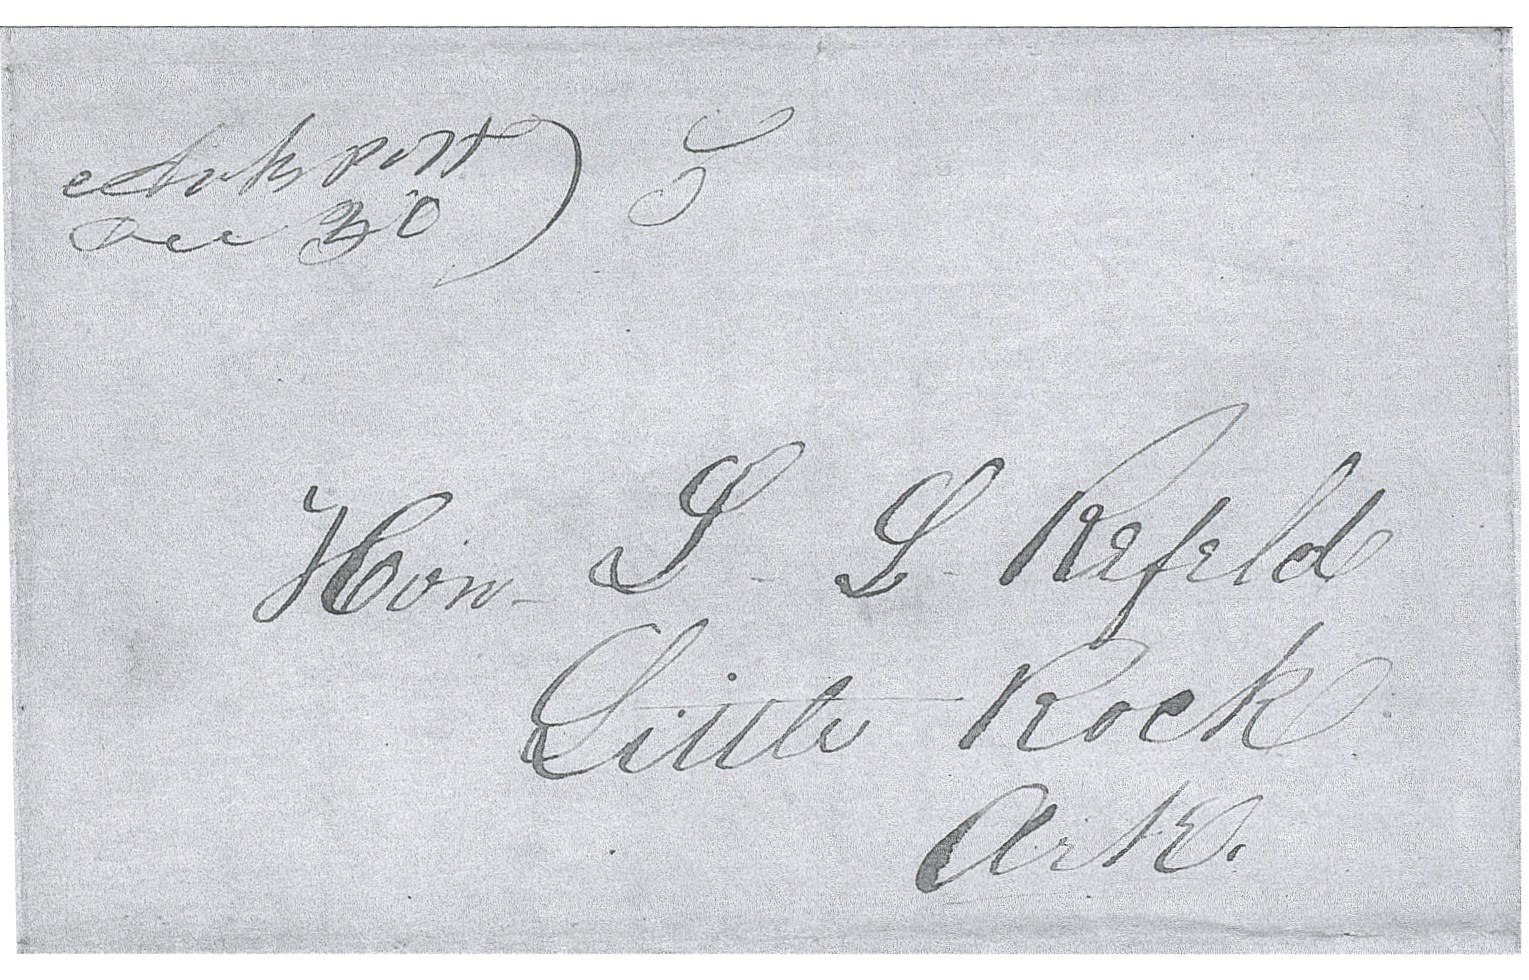 Ark Post
Dec 30
5
Hon- S - L - Refeld
Little Rock
Ark.